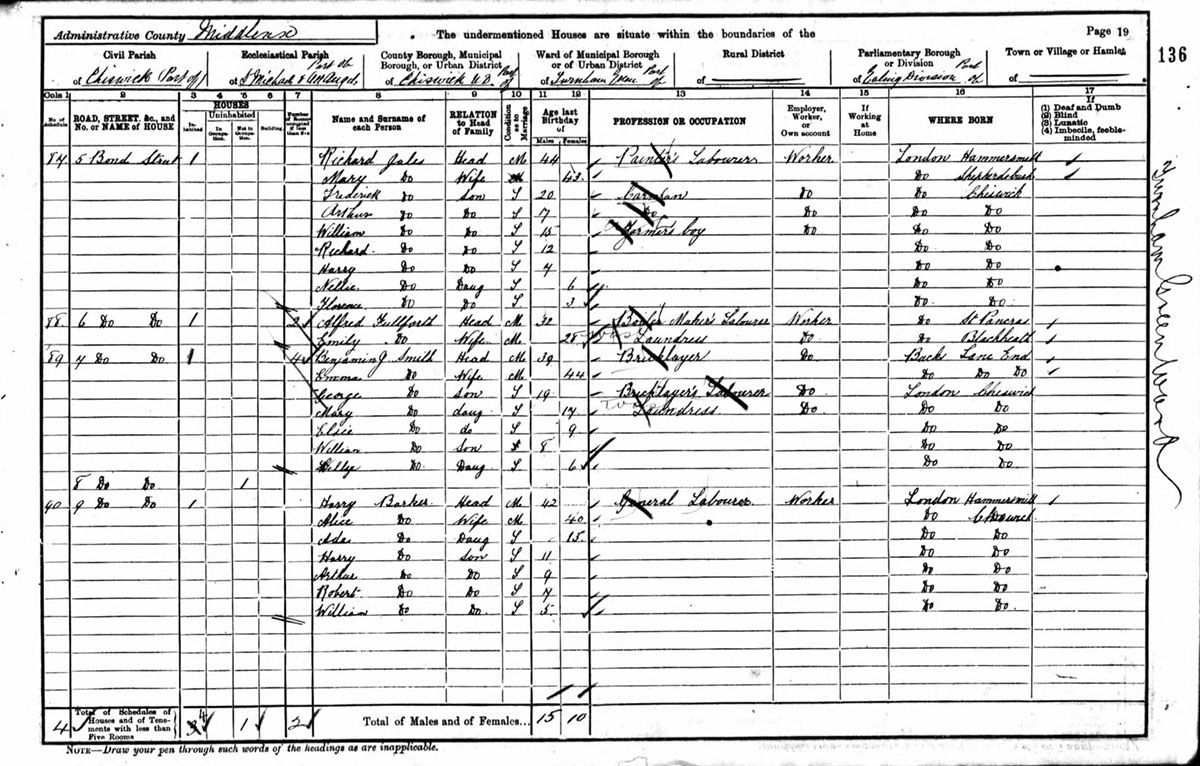 Administrative County Middlesex
The undermentioned Houses are situate within the boundaries of the
Page 19
136
Civil Parish
of Chiswick Part of
Ecclesiastical Parish
Part of
of St Michael & All Angels
County Borough, Municipal Borough, or Urban District
of Chiswick U.D. Part of
Ward of Municipal Borough or of Urban District
of Turnham Green Part of
Rural District
of
Parliamentary Borough or Division
of Ealing Division Part of
Town or Village or Hamlet
of
Cols 1 2 3 4 5 6 7 8 9 10 11 12 13 14 15 16 17
No. of Schedule
ROAD, STREET, &c., and No. or NAME of HOUSE
HOUSES
Inhabited
Uninhabited
In Occupation
Not in Occupation
Building
Number of Rooms occupied if less than five
Name and Surname of each Person
RELATION to Head of Family
Condition as to Marriage
Age last Birthday of
Males Females
PROFESSION OR OCCUPATION
Employer, Worker, or Own account
If Working at Home
WHERE BORN
If
(1) Deaf and Dumb
(2) Blind
(3) Lunatic
(4) Imbecile, feeble-minded
87 5 Bond Street 1 Richard Head M 44 Painter's Labourer Worker London Hammersmith
Mary Do Wife M 43 Do Shepherdsbush
Frederick Do Son S 20 Carman Do Do Chiswick
Arthur Do Do S 7 Do Do Do Do
William Do Do S 15 boy Do Do Do
Richard Do Do S 12 Do Do
Harry Do Do S 7 Do Do
Nellie Do Daug S 6 Do Do
Florence Do Do S 3 Do Do
88 6 Do Do 1 2 Alfred Fullforth Head M 32 Maker's Labourer Worker Do St Pancras
Emily Do Wife M 28 Laundress Do Blackheath
89 7 Do Do 1 4 Benjamin J Smith Head M 39 Bricklayer Do Back Lane End
Emma Do Wife M 44 Do Do Do
George Do Son S 19 Bricklayer's Labourer Do London Chiswick
Mary Do daug S 17 Laundress Do Do Do
Elsie Do do S 9 Do Do
William Do Son S 8 Do Do
Lilly Do Daug S 6 Do Do
8 Do Do 1
90 9 Do Do 1 Harry Barker Head M 42 General Labourer Worker London Hammersmith
Alice Do Wife M 40 Do Chiswick
Ada Do Daug S 15 Do Do
Harry Do Son S 11 Do Do
Arthur Do Do S 9 Do Do
Robert Do Do S 7 Do Do
William Do Do S 5 Do Do
Turnham Green Ward
4 Total of Schedules of Houses and of Tenements with less than Five Rooms 4 1 2 Total of Males and of Females... 15 10
NOTE—Draw your pen through such words of the headings as are inapplicable.